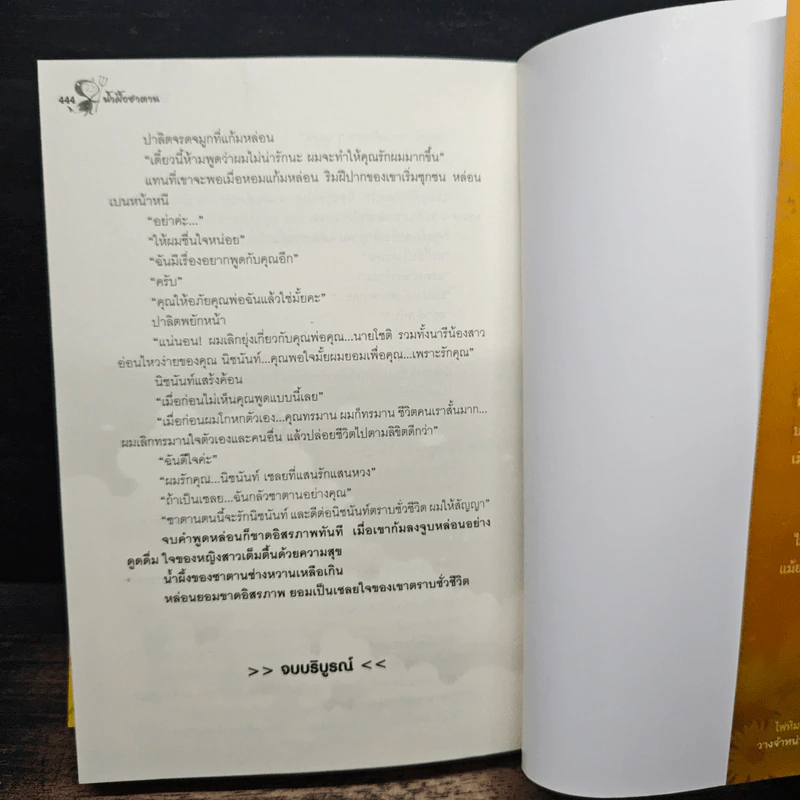 444 น้ำผึ้งซาตาน
ปาลิตจรดจมูกที่แก้มหล่อน
“เดี๋ยวนี้ห้ามพูดว่าผมไม่น่ารักนะ ผมจะทำให้คุณรักผมมากขึ้น”
แทนที่เขาจะพอเมื่อหอมแก้มหล่อน ริมฝีปากของเขาเริ่มซุกซน หล่อน
เบนหน้าหนี
“อย่าค่ะ...”
“ให้ผมชื่นใจหน่อย”
“ฉันมีเรื่องอยากพูดกับคุณอีก”
“ครับ”
“คุณให้อภัยคุณพ่อฉันแล้วใช่มั้ยคะ”
ปาลิตพยักหน้า
“แน่นอน! ผมเลิกยุ่งเกี่ยวกับคุณพ่อคุณ...นายโชติ รวมทั้งนารีน้องสาว
อ่อนไหวง่ายของคุณ นิชนันท์...คุณพอใจมั้ยผมยอมเพื่อคุณ...เพราะรักคุณ”
นิชนันท์แสร้งค้อน
“เมื่อก่อนไม่เห็นคุณพูดแบบนี้เลย”
“เมื่อก่อนผมโกหกตัวเอง...คุณทรมาน ผมก็ทรมาน ชีวิตคนเราสั้นมาก...
ผมเลิกทรมานใจตัวเองและคนอื่น แล้วปล่อยชีวิตไปตามลิขิตดีกว่า”
“ฉันดีใจค่ะ”
“ผมรักคุณ...นิชนันท์ เชลยที่แสนรักแสนหวง”
“ถ้าเป็นเชลย...ฉันกลัวซาตานอย่างคุณ”
“ซาตานตนนี้จะรักนิชนันท์ และดีต่อนิชนันท์ตราบชั่วชีวิต ผมให้สัญญา”
จบคำพูดหล่อนก็ขาดอิสรภาพทันที เมื่อเขาก้มลงจูบหล่อนอย่าง
ดูดดื่ม ใจของหญิงสาวเต็มตื้นด้วยความสุข
น้ำผึ้งของซาตานช่างหวานเหลือเกิน
หล่อนยอมขาดอิสรภาพ ยอมเป็นเชลยใจของเขาตราบชั่วชีวิต
>> จบบริบูรณ์ <<